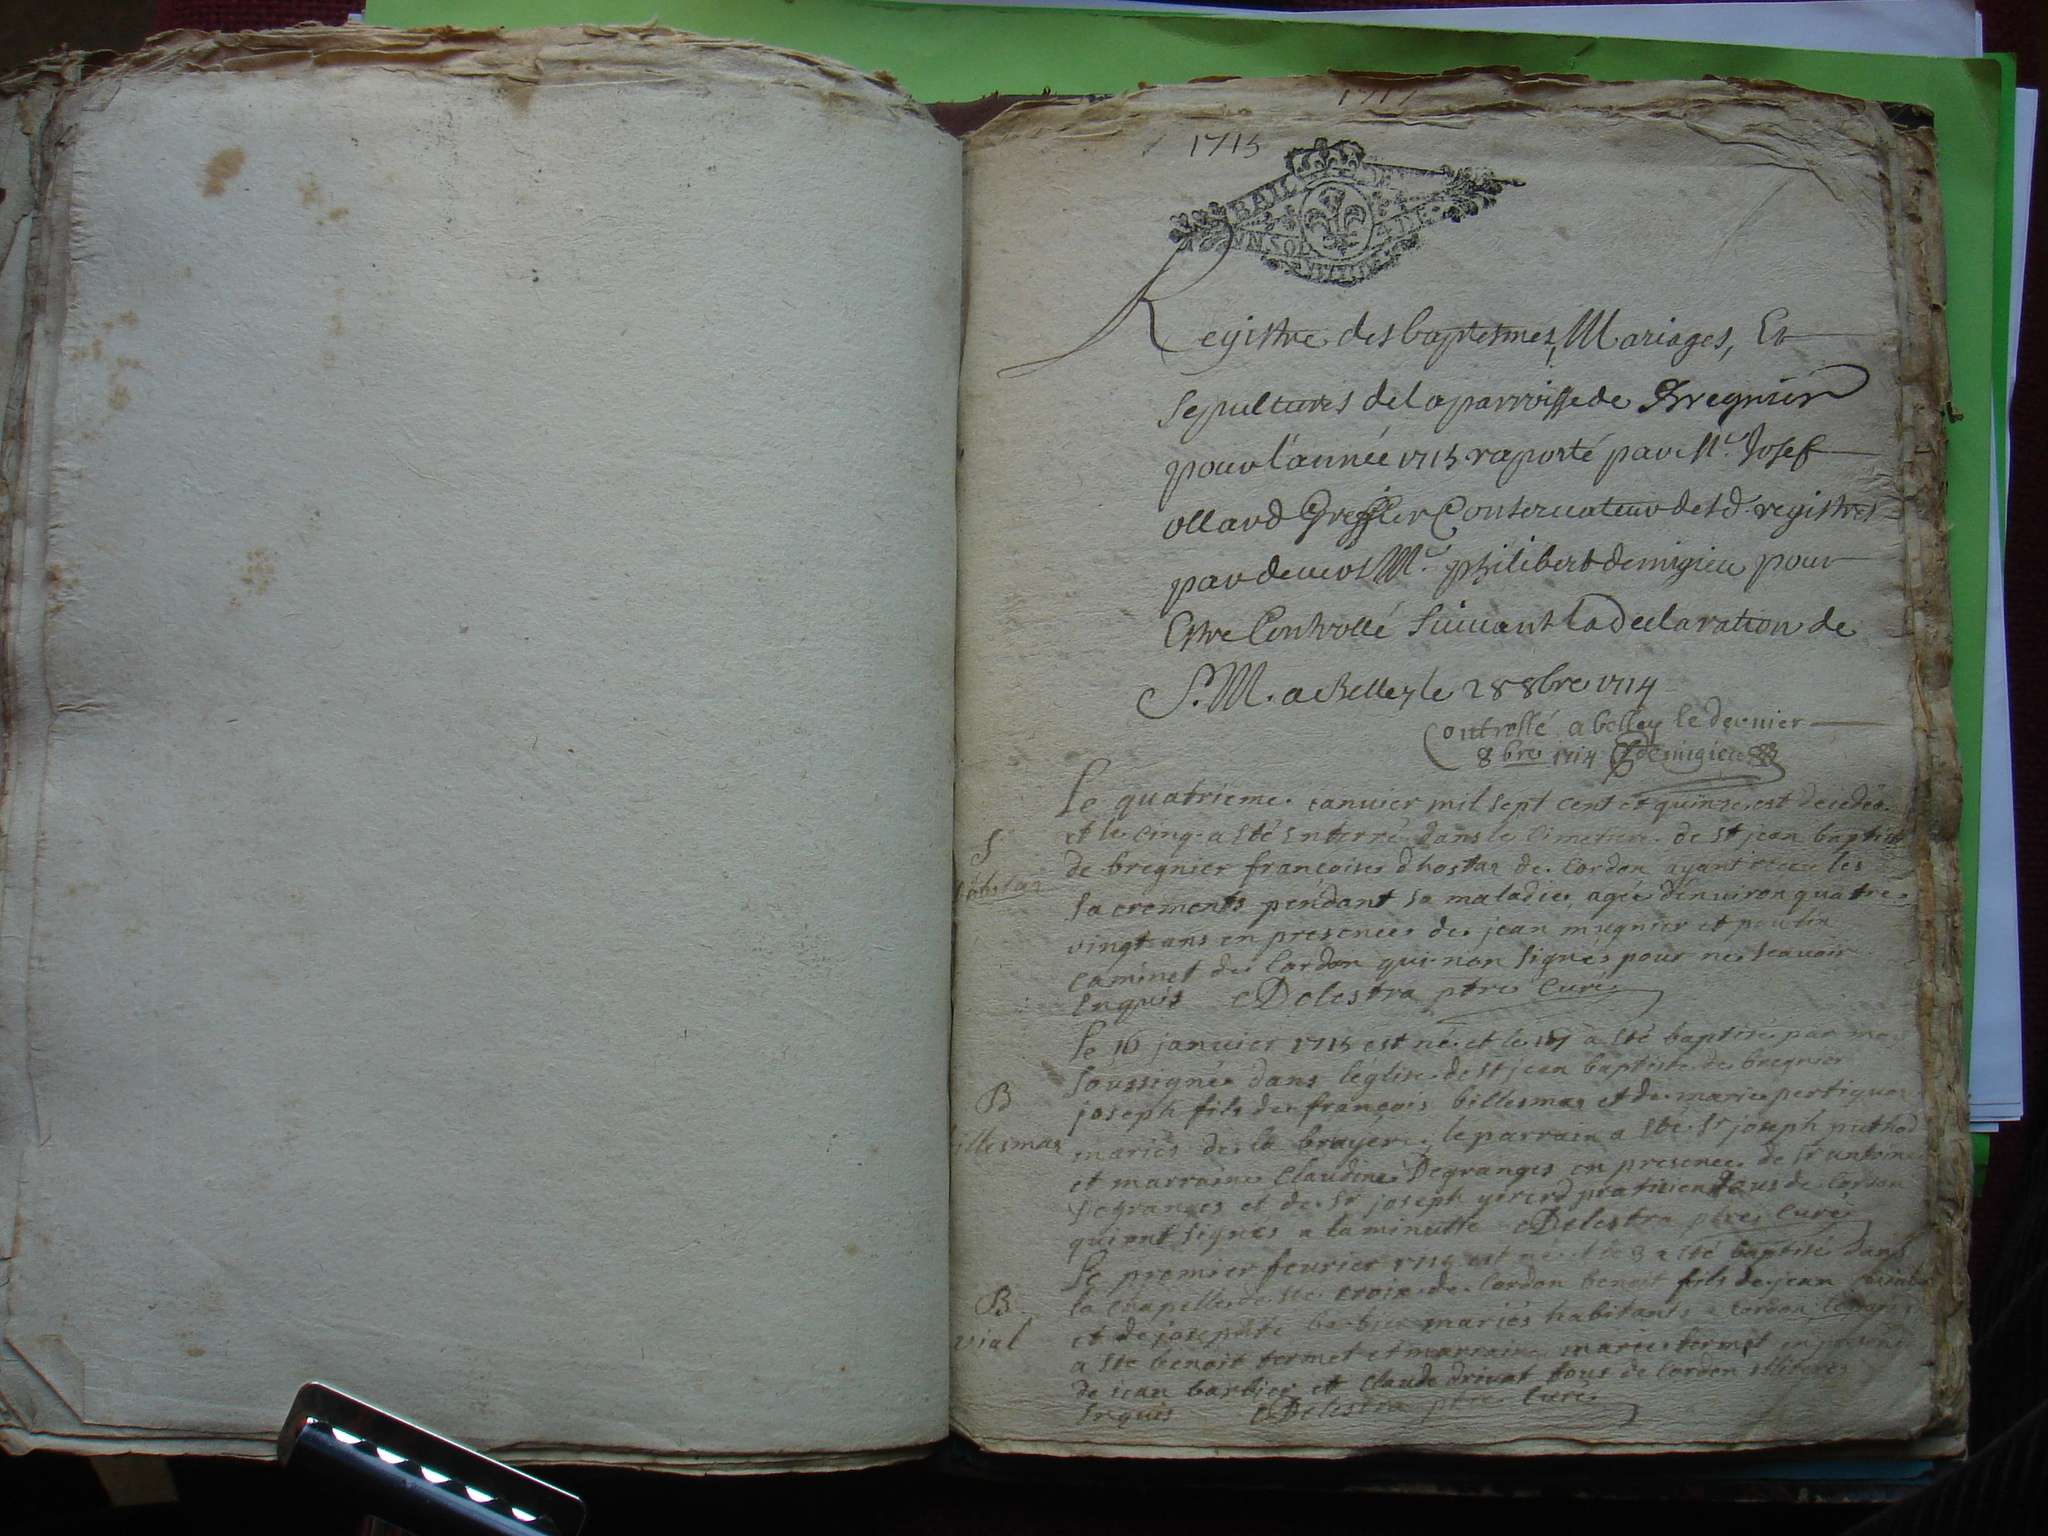 1715
Registre des baptesmes, Mariages, Et
sepultures de la parroisse de Bregnier
pour l'année 1715 raporté par Mc. Josef
ollard Greffier Conseruateur desd. registres
par deuers Mc. philibert demigieu pour
Estre Controllé suiuant la declaration de
S. M. a Belley le 28 8bre 1714
Controllé a belley le dernier
8bre 1714 demigieu
Le quatrieme ianuier mil sept cent et quinze est decedée
et le cinq a esté enterré dans le cimetiere de st jean baptiste
S
de bregnier françoise dhostaz de Cordon ayant receu les
dhostaz
sacrements pendant sa maladie, agée denuiron quatre
vingt ans en presence de jean mugnier et
caminet de Cordon qui non signés pour ne scauoir
enquis Delestra ptre Curé
Le 16 januier 1715 est né et le 17 a esté baptise par moy
soussigné dans leglise de st jean baptiste de bregnier
B
joseph fils de françois billesmaz et de marie
billesmaz
mariés de la bruyere, le parrain a esté Sr joseph puthod
et marraine Claudine Degranges en presence de Sr antoine
Degranges et de Sr joseph gererd praticien tous de Cordon
qui ont signés a la minutte Delestra ptre Curé
Le premier feurier 1715 est né et le 3 a esté baptisé dans
B
la chapelle de ste croix de Cordon benoit fils de jean
vial
et de josephte barbier mariés habitants a Cordon
a esté benoit termet et marraine marie termet en presence
de jean barbier et Claude driuat tous de Cordon illiterés
enquis Delestra ptre Curé